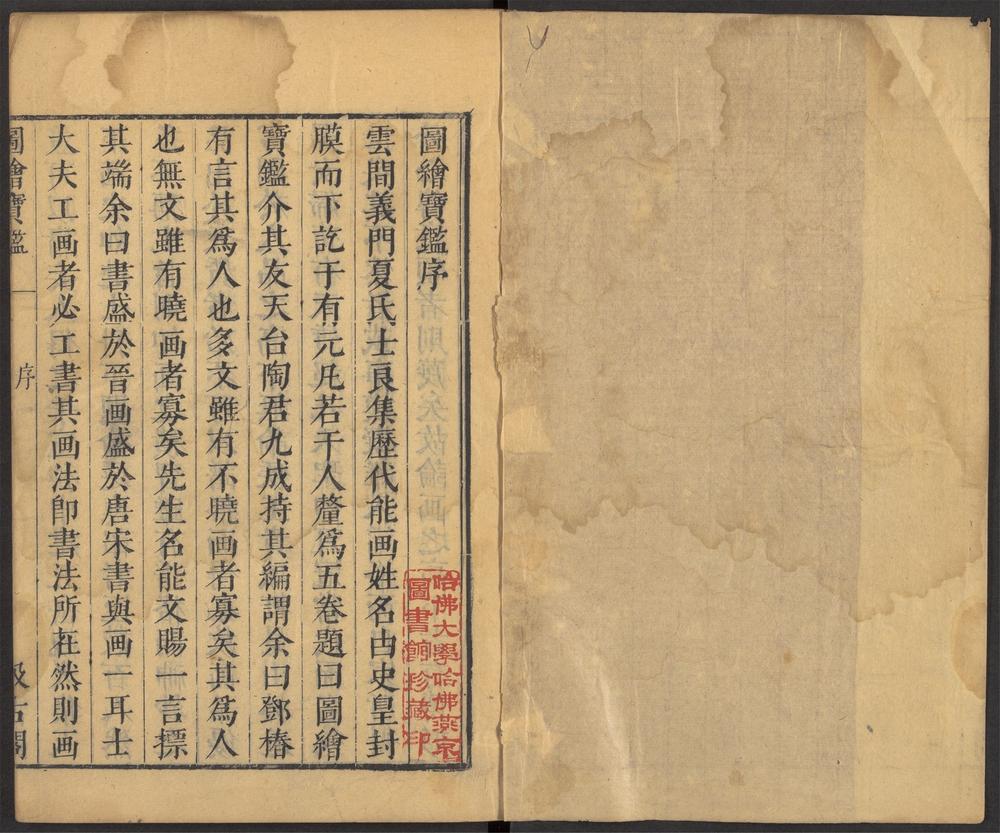 圖繪寶鑑序
雲間義門夏氏士良集歷代能画姓名由史皇封
膜而下訖于有元凡若干人釐爲五卷題曰圖繪
寶鑑介其友天台陶君九成持其編謂余曰鄧椿
有言其爲人也多文雖有不曉画者寡矣其爲人
也無文雖有曉画者寡矣先生名能文賜一言摽
其端余曰書盛於晉画盛於唐宋書與画一耳士
大夫工画者必工書其画法卽書法所在然則画
圖繪寶鑑
序
汲古閣
哈佛大學哈佛燕京
圖書館珍藏印